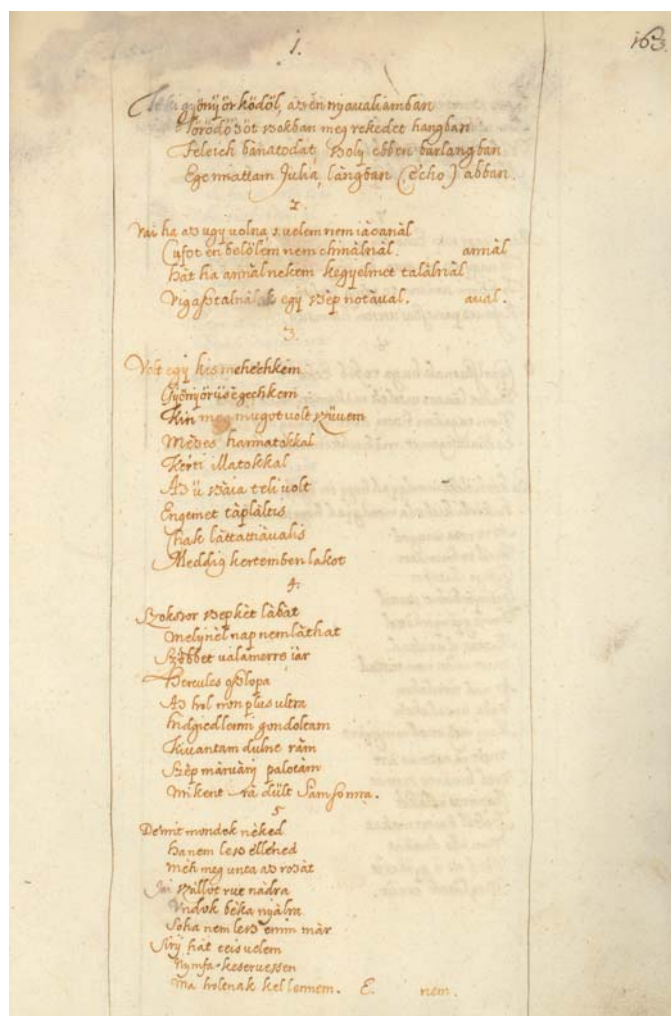 1.
163.
ki gyönÿörködöl, az én nyavaliámban
Törödözöt sokban meg rekedet hangban
Feleich bánatodat, holy ebben barlangban
Ege mattam Juliá, lángban (echo) abban.
2.
Vai ha az ugy volna, s velem nem iáczanál
Cufot én belölem nem chinálnál. annál
hát ha annál nekem kegyelmet találnál
Vigasztalnálak egy szép notával. aval.
3.
Volt egy kis mehechkém
Gyönyörüségechkem
Kin meg nyugot volt szüvem
Mézes harmatokkal
Kerti illatokkal
Az ü szaia teli volt
Engemet tápláltis
Chak láttattiávalis
Meddig kertemben lakot
4.
Szokszor szép két lábát
Melynél nap nem láthat
Szebbet valamerre iár
Hercules oszlopa
Az hol non plus ultra
hidgied lenni gondoltam
Kivantam dülne rám
Szép márvány palotám
Mikent rá dült Samsonra.
5
De mit mondok néked
Ha nem lesz ellened
Meh meg unta az rosát
Jai szállot rut nádra
Undok béka nyálra
Soha nem lesz enim már
Sirÿ hát te is velem
Nymfa keservessen
Ma holtnak kel lennem. E. nem.